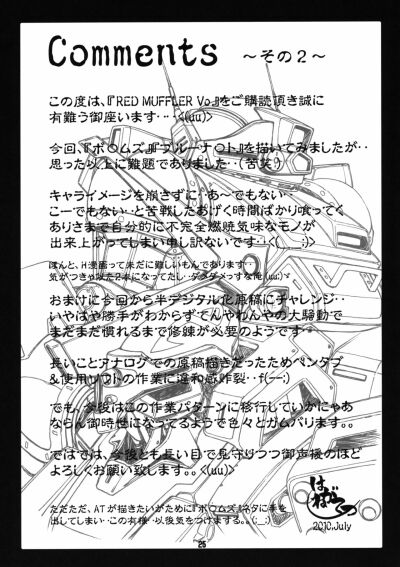 Comments
～その２～
この度は、『RED MUFFLER Vo.』をご購読頂き誠に
有難う御座います・・・<(uu)>
今回、『ボ○ムズ』『ブルーナ○ト』を描いてみましたが‥
思った以上に難題でありました‥(苦笑)
キャライメージを崩さずに‥あ～でもない‥
こーでもない‥と苦戦したあげく時間ばかり喰ってく
ありさまで自分的に不完全燃焼気味なモノが
出来上がってしまい申し訳ないです‥<(__;)>
ほんと、H漫画って未だに難しいもんであります‥
おまけに今回から半デジタル化原稿にチャレンジ‥
いやはや勝手がわからずてんやわんやの大騒動で
まだまだ慣れるまで修錬が必要のようです‥
長いことアナログでの原稿描きだったためペンタブ
&使用ソフトの作業に違和感炸裂‥f(--;)
でも、今後はこの作業パターンに移行していかにゃあ
ならん御時世になってるようで色々とガムバります。。
ではでは、今後とも長い目で見守りつつ御声援のほど
よろしくお願い致します。。<(uu)>
ただただ、ATが描きたいがために『ボ○ムズ』ネタに手を
出してしまい‥この有様‥以後気をつけまする。。(;_;)
2010.July
25